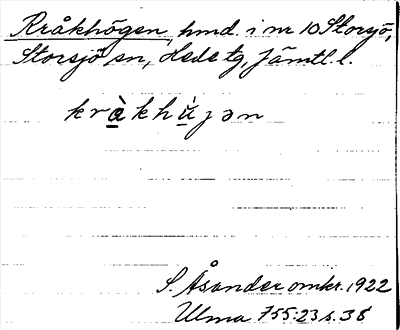 Kråkhögen, hmd. i nr 10 Storsjö,
Storsjö sn, Hede tg, Jämtl. l.
kràkhùjən
S. Åsander omkr. 1922
Ulma 755:23 s. 36